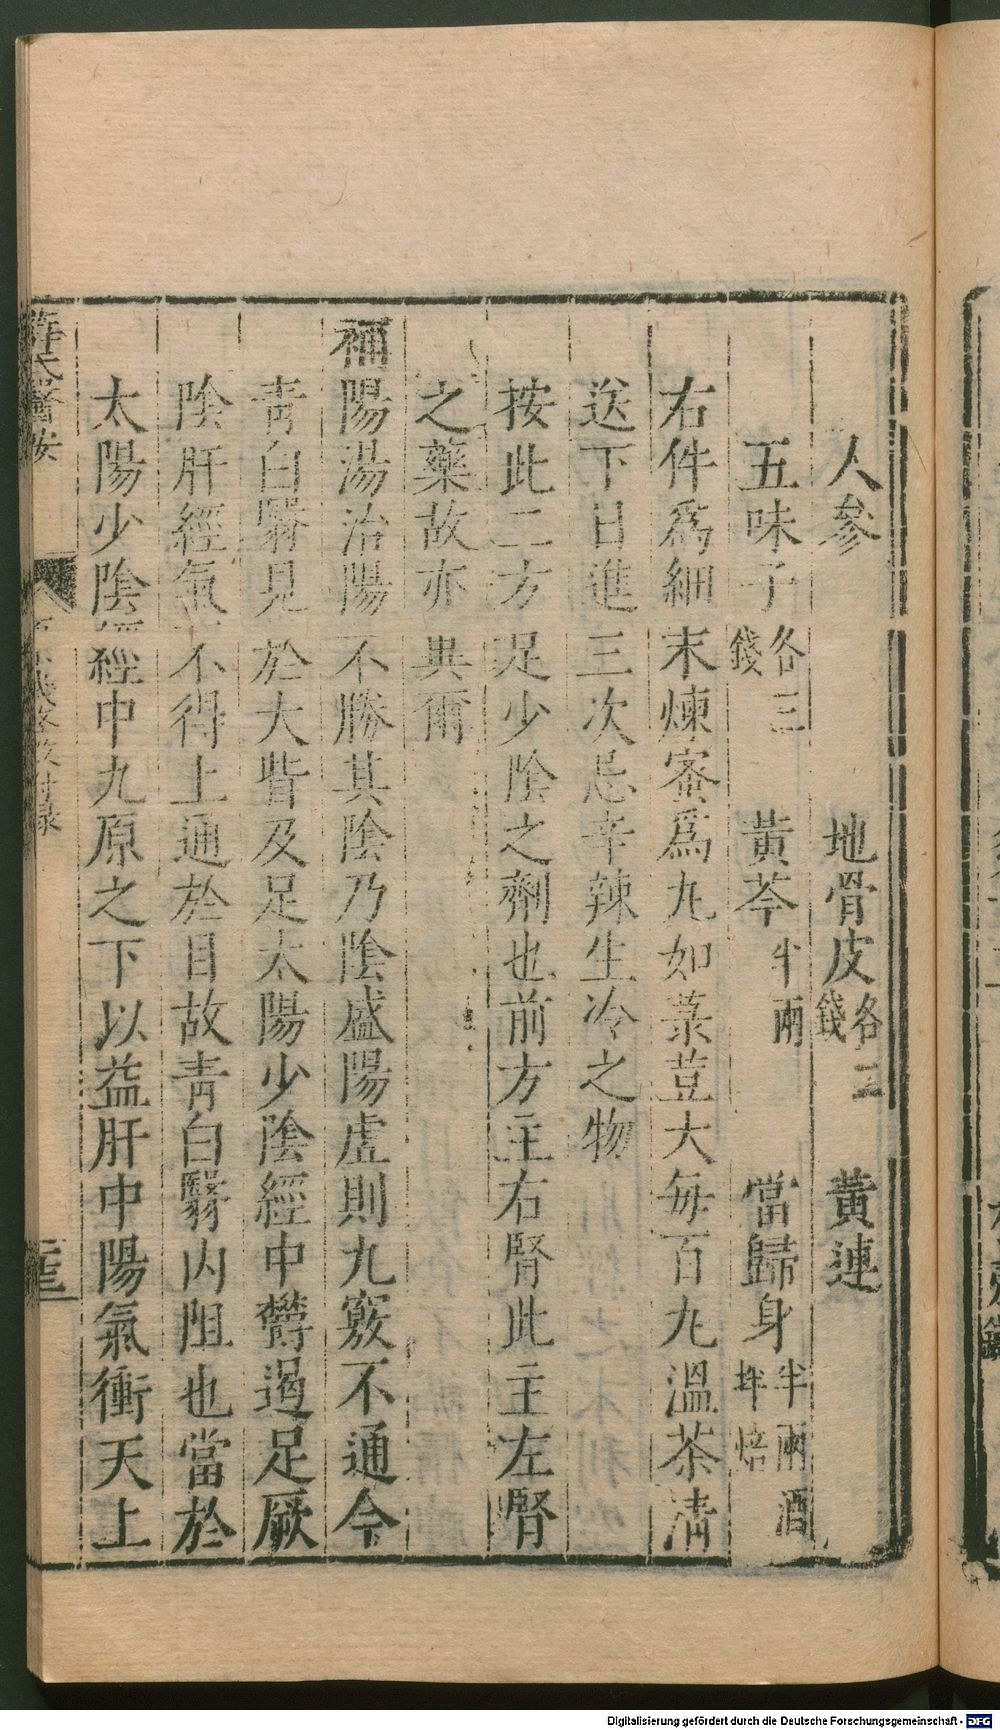 人參　地骨皮各二錢　黃連
五味子各三錢　黃芩半兩　當歸身半兩酒拌焙
右件爲細末煉蜜爲丸如菉荳大每百丸溫茶清
送下日進三次忌辛辣生冷之物
按此二方足少陰之劑也前方主右腎此主左腎
之藥故亦異爾
補陽湯治陽不勝其陰乃陰盛陽虛則九竅不通令
靑白翳見於大眥及足太陽少陰經中鬱遏足厥
陰肝經氣不得上通於目故靑白翳內阻也當於
太陽少陰經中九原之下以益肝中陽氣衝天上
薛氏醫按
原機啓微附錄
Digitalisierung gefördert durch die Deutsche Forschungsgemeinschaft - DFG